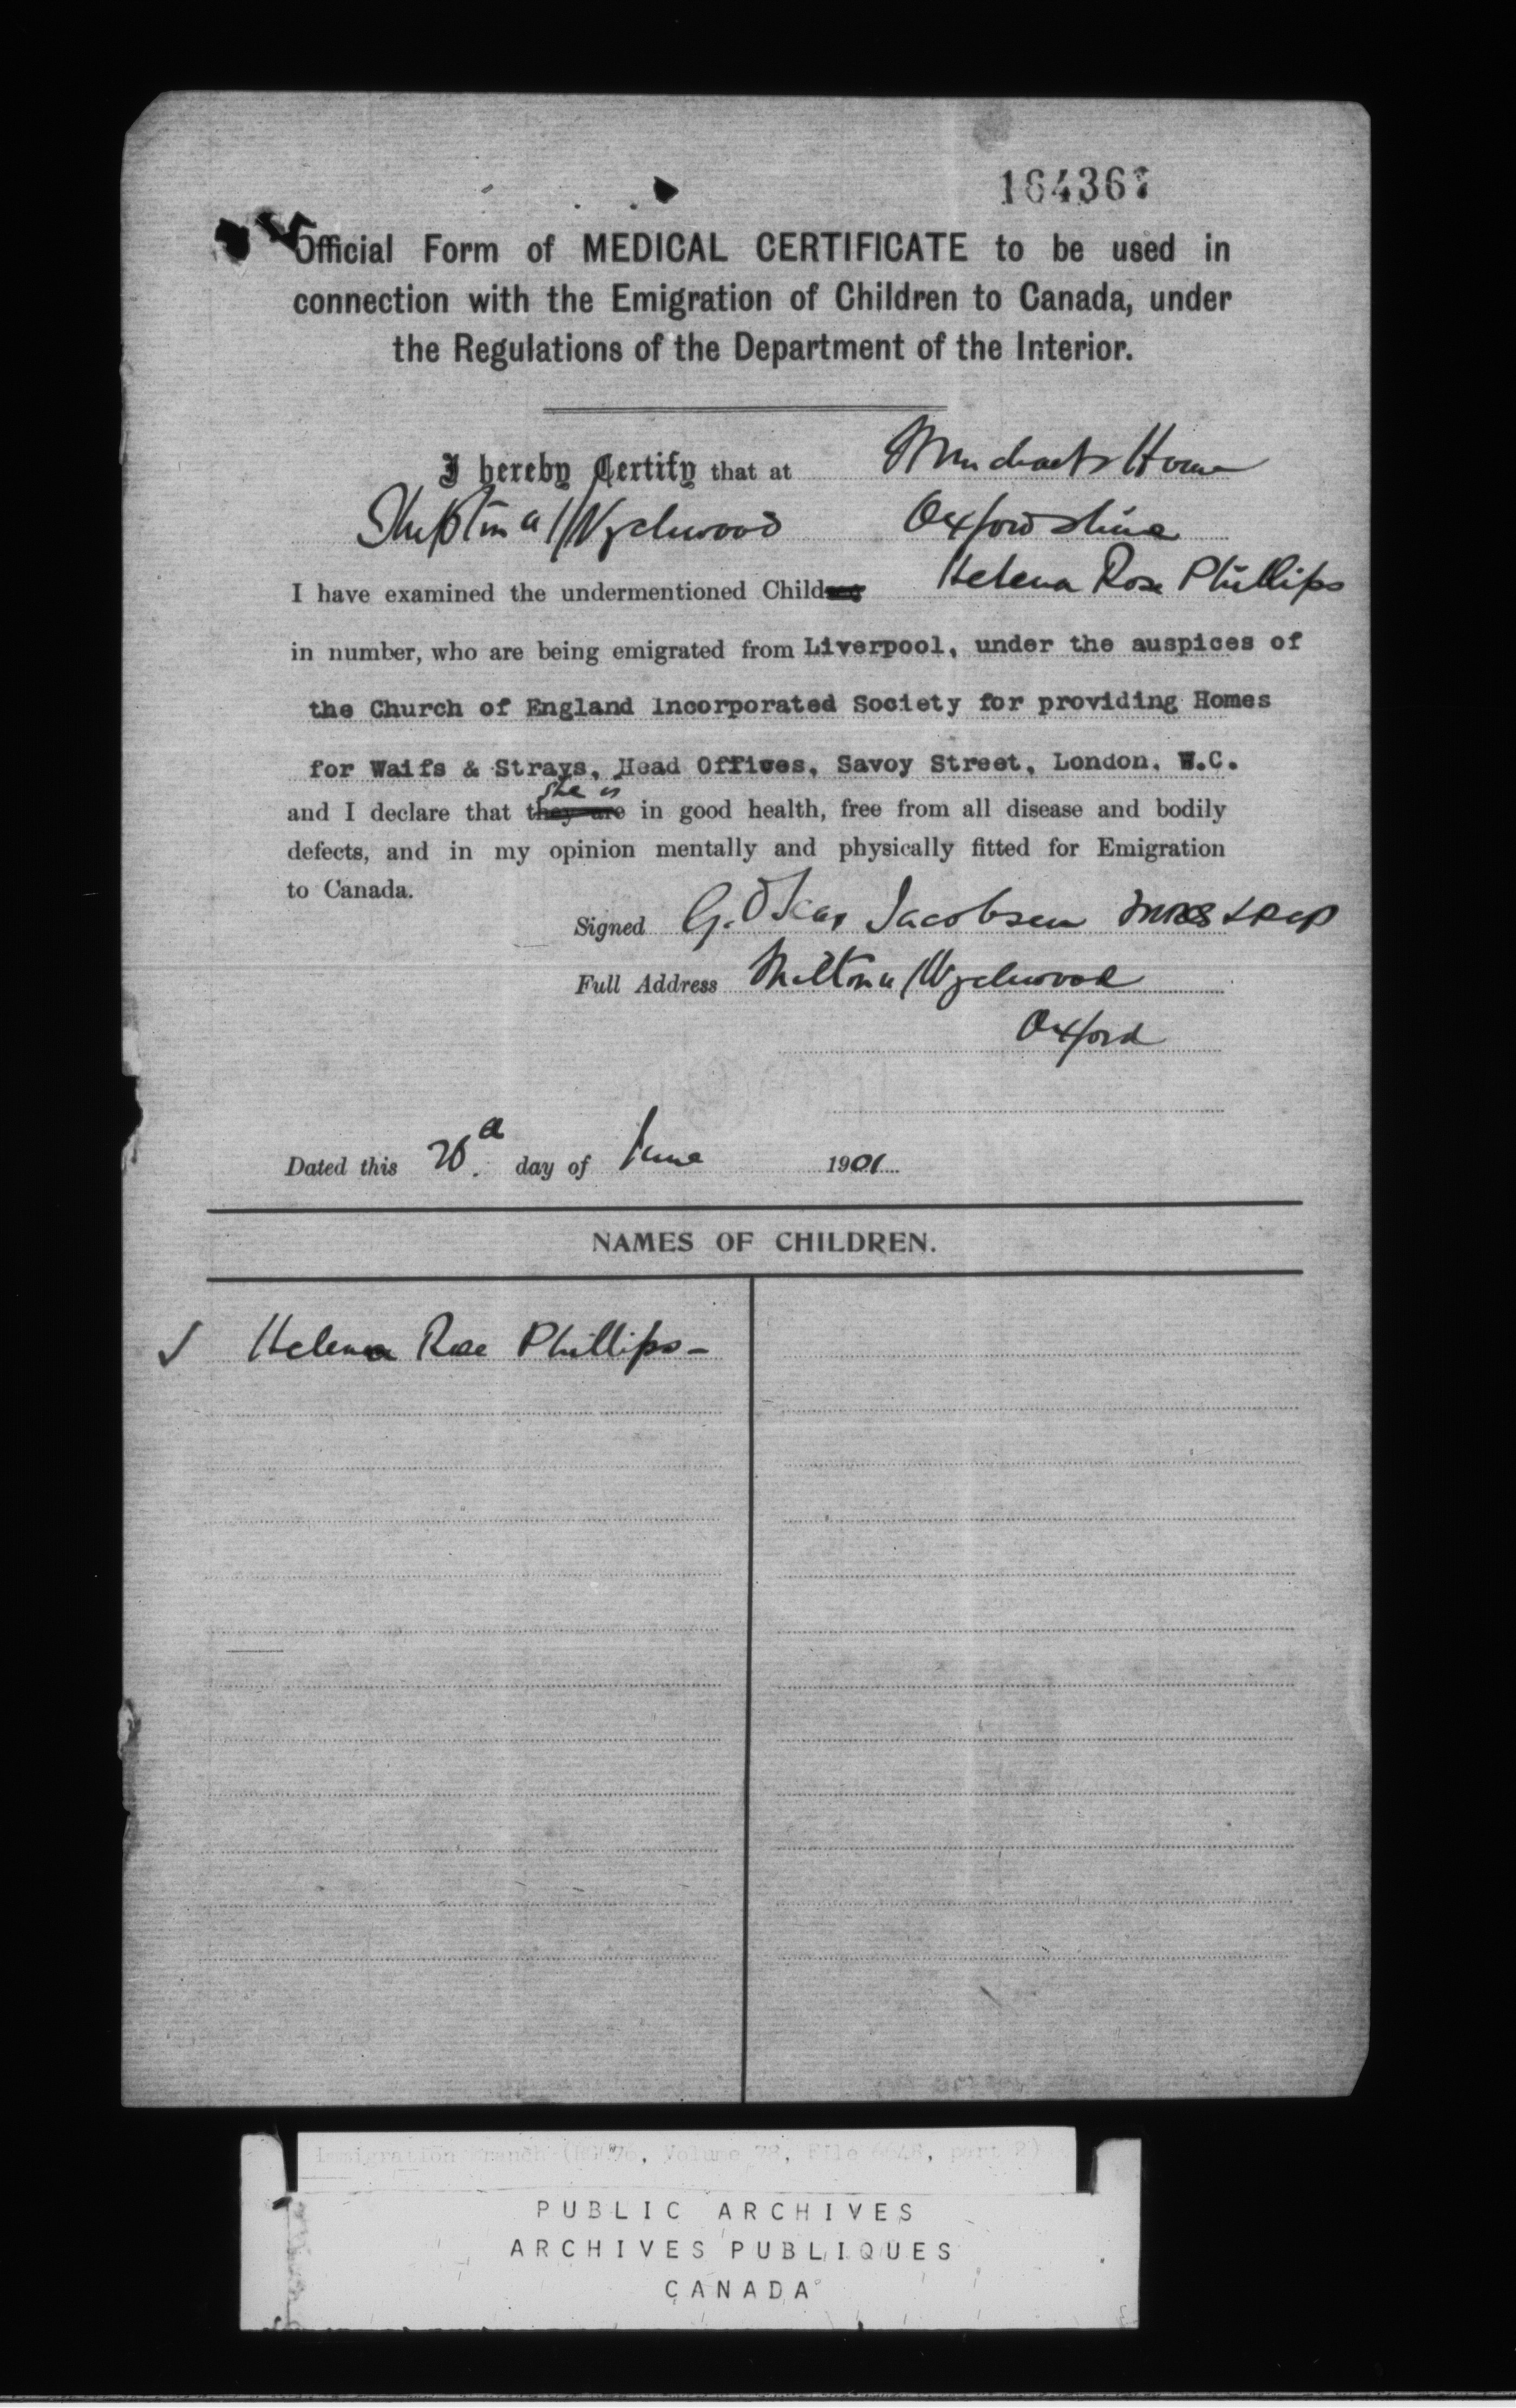 164367
Official Form of MEDICAL CERTIFICATE to be used in
connection with the Emigration of Children to Canada, under
the Regulations of the Department of the Interior.
I hereby Certify that at St Michaels Home
Shipton u/Wychwood Oxfordshire
I have examined the undermentioned Child Helena Rose Phillips
in number, who are being emigrated from Liverpool, under the auspices of
the Church of England Incorporated Society for providing Homes
for Waifs & Strays, Head Offices, Savoy Street, London, W.C.
she is
and I declare that they are in good health, free from all disease and bodily
defects, and in my opinion mentally and physically fitted for Emigration
to Canada.
Signed G. Oscar Jacobsen MRCS LRCP
Full Address Milton u/Wychwood
Oxford
Dated this day of June 1901
NAMES OF CHILDREN.
✓ Helena Rose Phillips -
Immigration Branch (RG 76, Volume 78, File, part 2)
PUBLIC ARCHIVES
ARCHIVES PUBLIQUES
CANADA